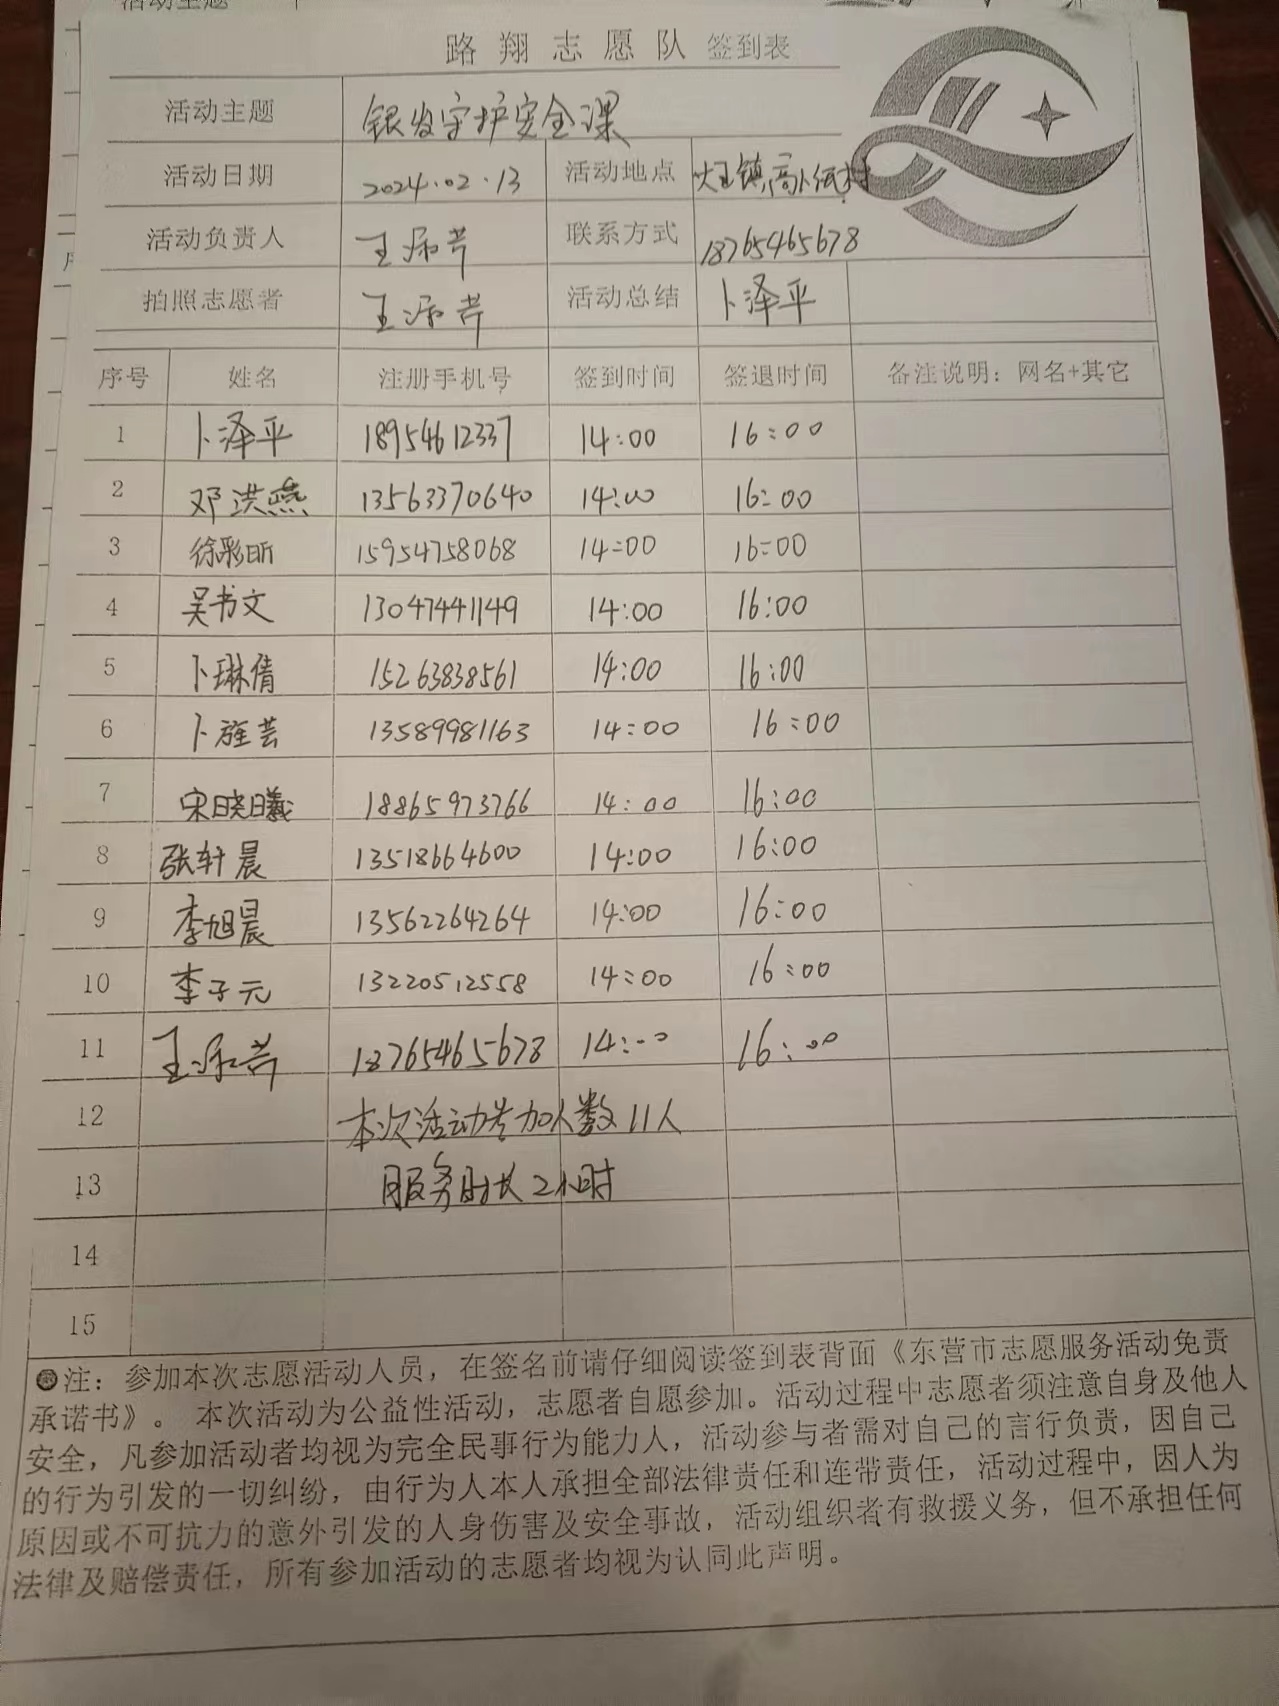 路翔志愿队 签到表
活动主题 银发守护安全课
活动日期 2024.02.13 活动地点 大王镇高卜纸村
活动负责人 王 联系方式 18765465678
拍照志愿者 王 活动总结 卜泽平
序号 姓名 注册手机号 签到时间 签退时间 备注说明：网名+其它
1 卜泽平 18954612337 14:00 16:00
2 邓洪燕 13563370640 14:00 16:00
3 徐彩昕 15954758068 14:00 16:00
4 吴书文 13047441149 14:00 16:00
5 卜琳倩 15263838561 14:00 16:00
6 卜 芸 13589981163 14:00 16:00
7 宋晓曦 18865973766 14:00 16:00
8 张轩晨 13518664600 14:00 16:00
9 李旭晨 13562264264 14:00 16:00
10 李子元 13220512558 14:00 16:00
11 王 18765465678 14:00 16:00
12 本次活动参加人数11人
13 服务时长2小时
14
15
注：参加本次志愿活动人员，在签名前请仔细阅读签到表背面《东营市志愿服务活动免责
承诺书》。 本次活动为公益性活动，志愿者自愿参加。活动过程中志愿者须注意自身及他人
安全，凡参加活动者均视为完全民事行为能力人，活动参与者需对自己的言行负责，因自己
的行为引发的一切纠纷，由行为人本人承担全部法律责任和连带责任，活动过程中，因人为
原因或不可抗力的意外引发的人身伤害及安全事故，活动组织者有救援义务，但不承担任何
法律及赔偿责任，所有参加活动的志愿者均视为认同此声明。